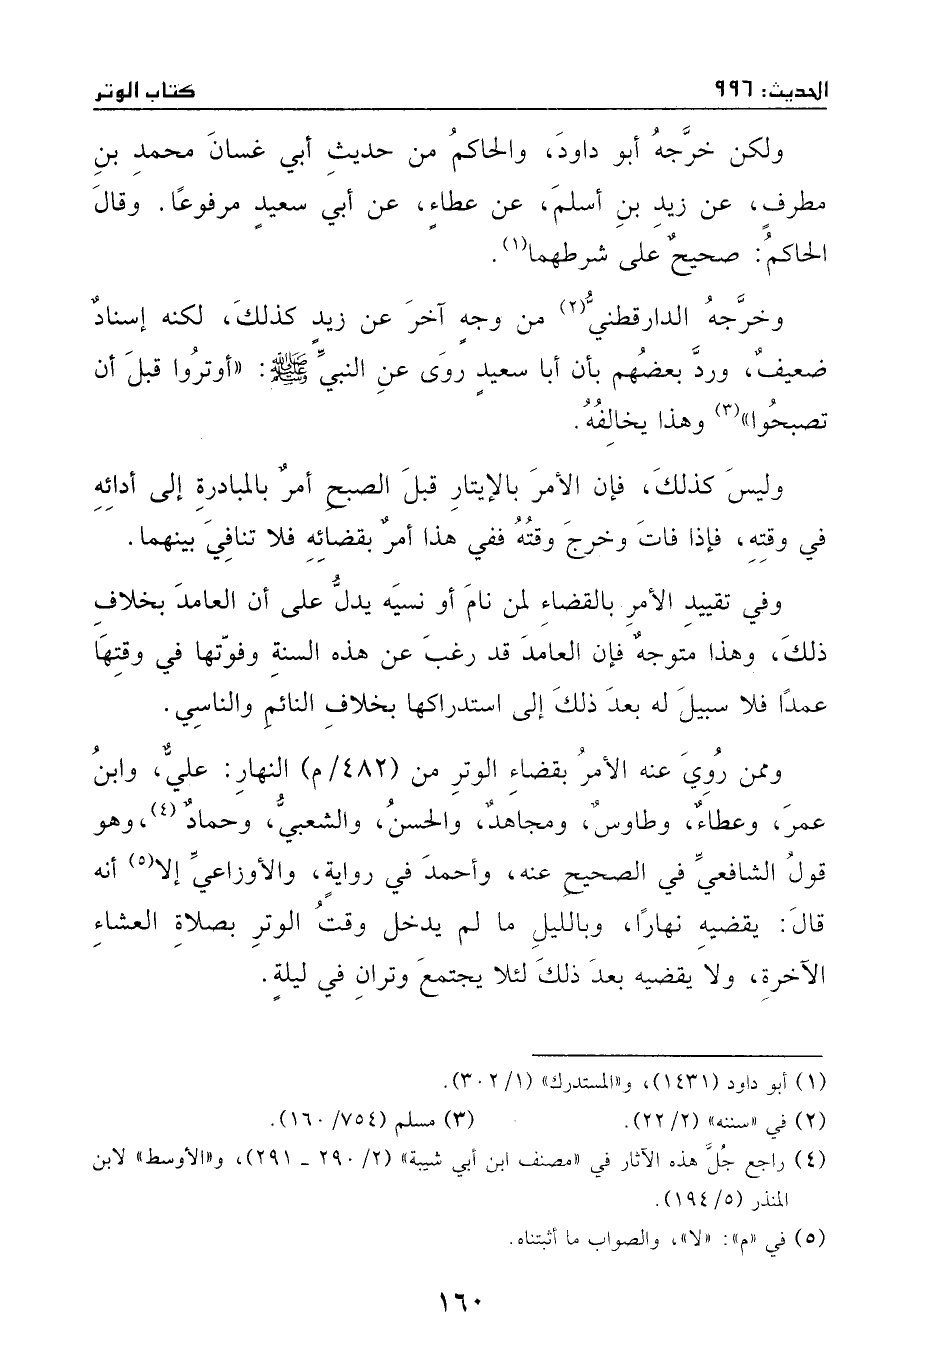 الحديث: ٩٩٦
كتاب الوتر
ولكن خرَّجهُ أبو داودَ، والحاكمُ من حديثِ أبي غسانَ محمدِ بنِ
مطرفٍ، عن زيدِ بنِ أسلمَ، عن عطاءٍ، عن أبي سعيدٍ مرفوعًا. وقالَ
الحاكمُ: صحيحٌ على شرطهما(١).
وخرَّجهُ الدارقطنيُّ(٢) من وجهٍ آخرَ عن زيدٍ كذلكَ، لكنه إسنادٌ
ضعيفٌ، وردَّ بعضُهم بأن أبا سعيدٍ روَى عنِ النبيِّ ﷺ: «أوترُوا قبلَ أن
تصبحُوا»(٣) وهذا يخالِفُهُ.
وليسَ كذلكَ، فإن الأمرَ بالإيتارِ قبلَ الصبحِ أمرٌ بالمبادرةِ إلى أدائِهِ
في وقتِهِ، فإذا فاتَ وخرجَ وقتُهُ ففي هذا أمرٌ بقضائِهِ فلا تنافيَ بينهما.
وفي تقييدِ الأمرِ بالقضاءِ لمن نامَ أو نسيَه يدلُّ على أن العامدَ بخلافِ
ذلكَ، وهذا متوجهٌ فإن العامدَ قد رغبَ عن هذه السنةِ وفوّتها في وقتِها
عمدًا فلا سبيلَ له بعدَ ذلكَ إلى استدراكها بخلافِ النائمِ والناسِي.
وممن رُوِيَ عنه الأمرُ بقضاءِ الوترِ من (٤٨٢/م) النهارِ: عليٌّ، وابنُ
عمرَ، وعطاءٌ، وطاوسٌ، ومجاهدٌ، والحسنُ، والشعبيُّ، وحمادٌ(٤)، وهو
قولُ الشافعيِّ في الصحيحِ عنه، وأحمدَ في روايةٍ، والأوزاعيِّ إلا(٥) أنه
قالَ: يقضيه نهارًا، وبالليلِ ما لم يدخل وقتُ الوترِ بصلاةِ العشاءِ
الآخرةِ، ولا يقضيه بعدَ ذلكَ لئلا يجتمعَ وترانِ في ليلةٍ.
(١) أبو داود (١٤٣١)، و«المستدرك» (٣٠٢/١).
(٢) في «سننه» (٢٢/٢).
(٣) مسلم (١٦٠/٧٥٤).
(٤) راجع جُلَّ هذه الآثار في «مصنف ابن أبي شيبة» (٢/ ٢٩٠ - ٢٩١)، و«الأوسط» لابن
المنذر (١٩٤/٥).
(٥) في «م»: «لا»، والصواب ما أثبتناه.
١٦٠